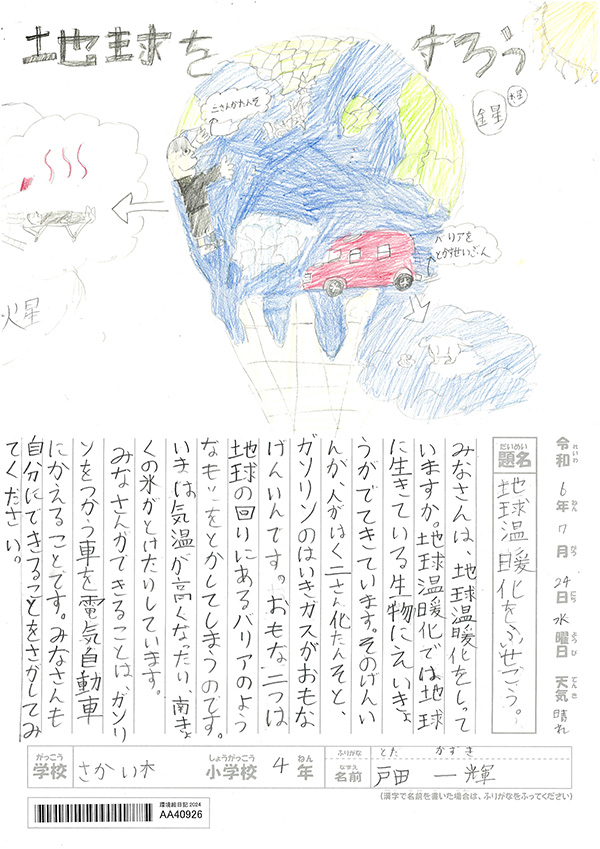 地球をすろう
二さんかたんそ
金星
水星
火星
バリアを
とかすせいぶん
令和6年7月24日水曜日 天気 晴れ
れいわ ねん がつ にち ようび てんき
だいめい
題名
地球温暖化をふせごう。
みなさんは、地球温暖化をしって
いますか。地球温暖化では地球
に生きている生物にえいきょ
うがでてきています。そのげんい
んが、人がはく二さん化たんそと、
ガソリンのはいきガスがおもな
げんいんです。おもな二つは
地球の回りにあるバリアのよう
なものをとかしてしまうのです。
いまは気温が高くなったり、南きょ
くの氷がとけたりしています。
みなさんができることは、ガソリ
ンをつかう車を電気自動車
にかえることです。みなさんも
自分にできることをさがしてみ
てください。
がっこう
学校
さかい木
しょうがっこう
小学校
4
ねん
年
ふりがな
とだ かずき
なまえ
名前
戸田 一輝
(漢字で名前を書いた場合は、ふりがなをふってください)
環境絵日記 2024
AA40926